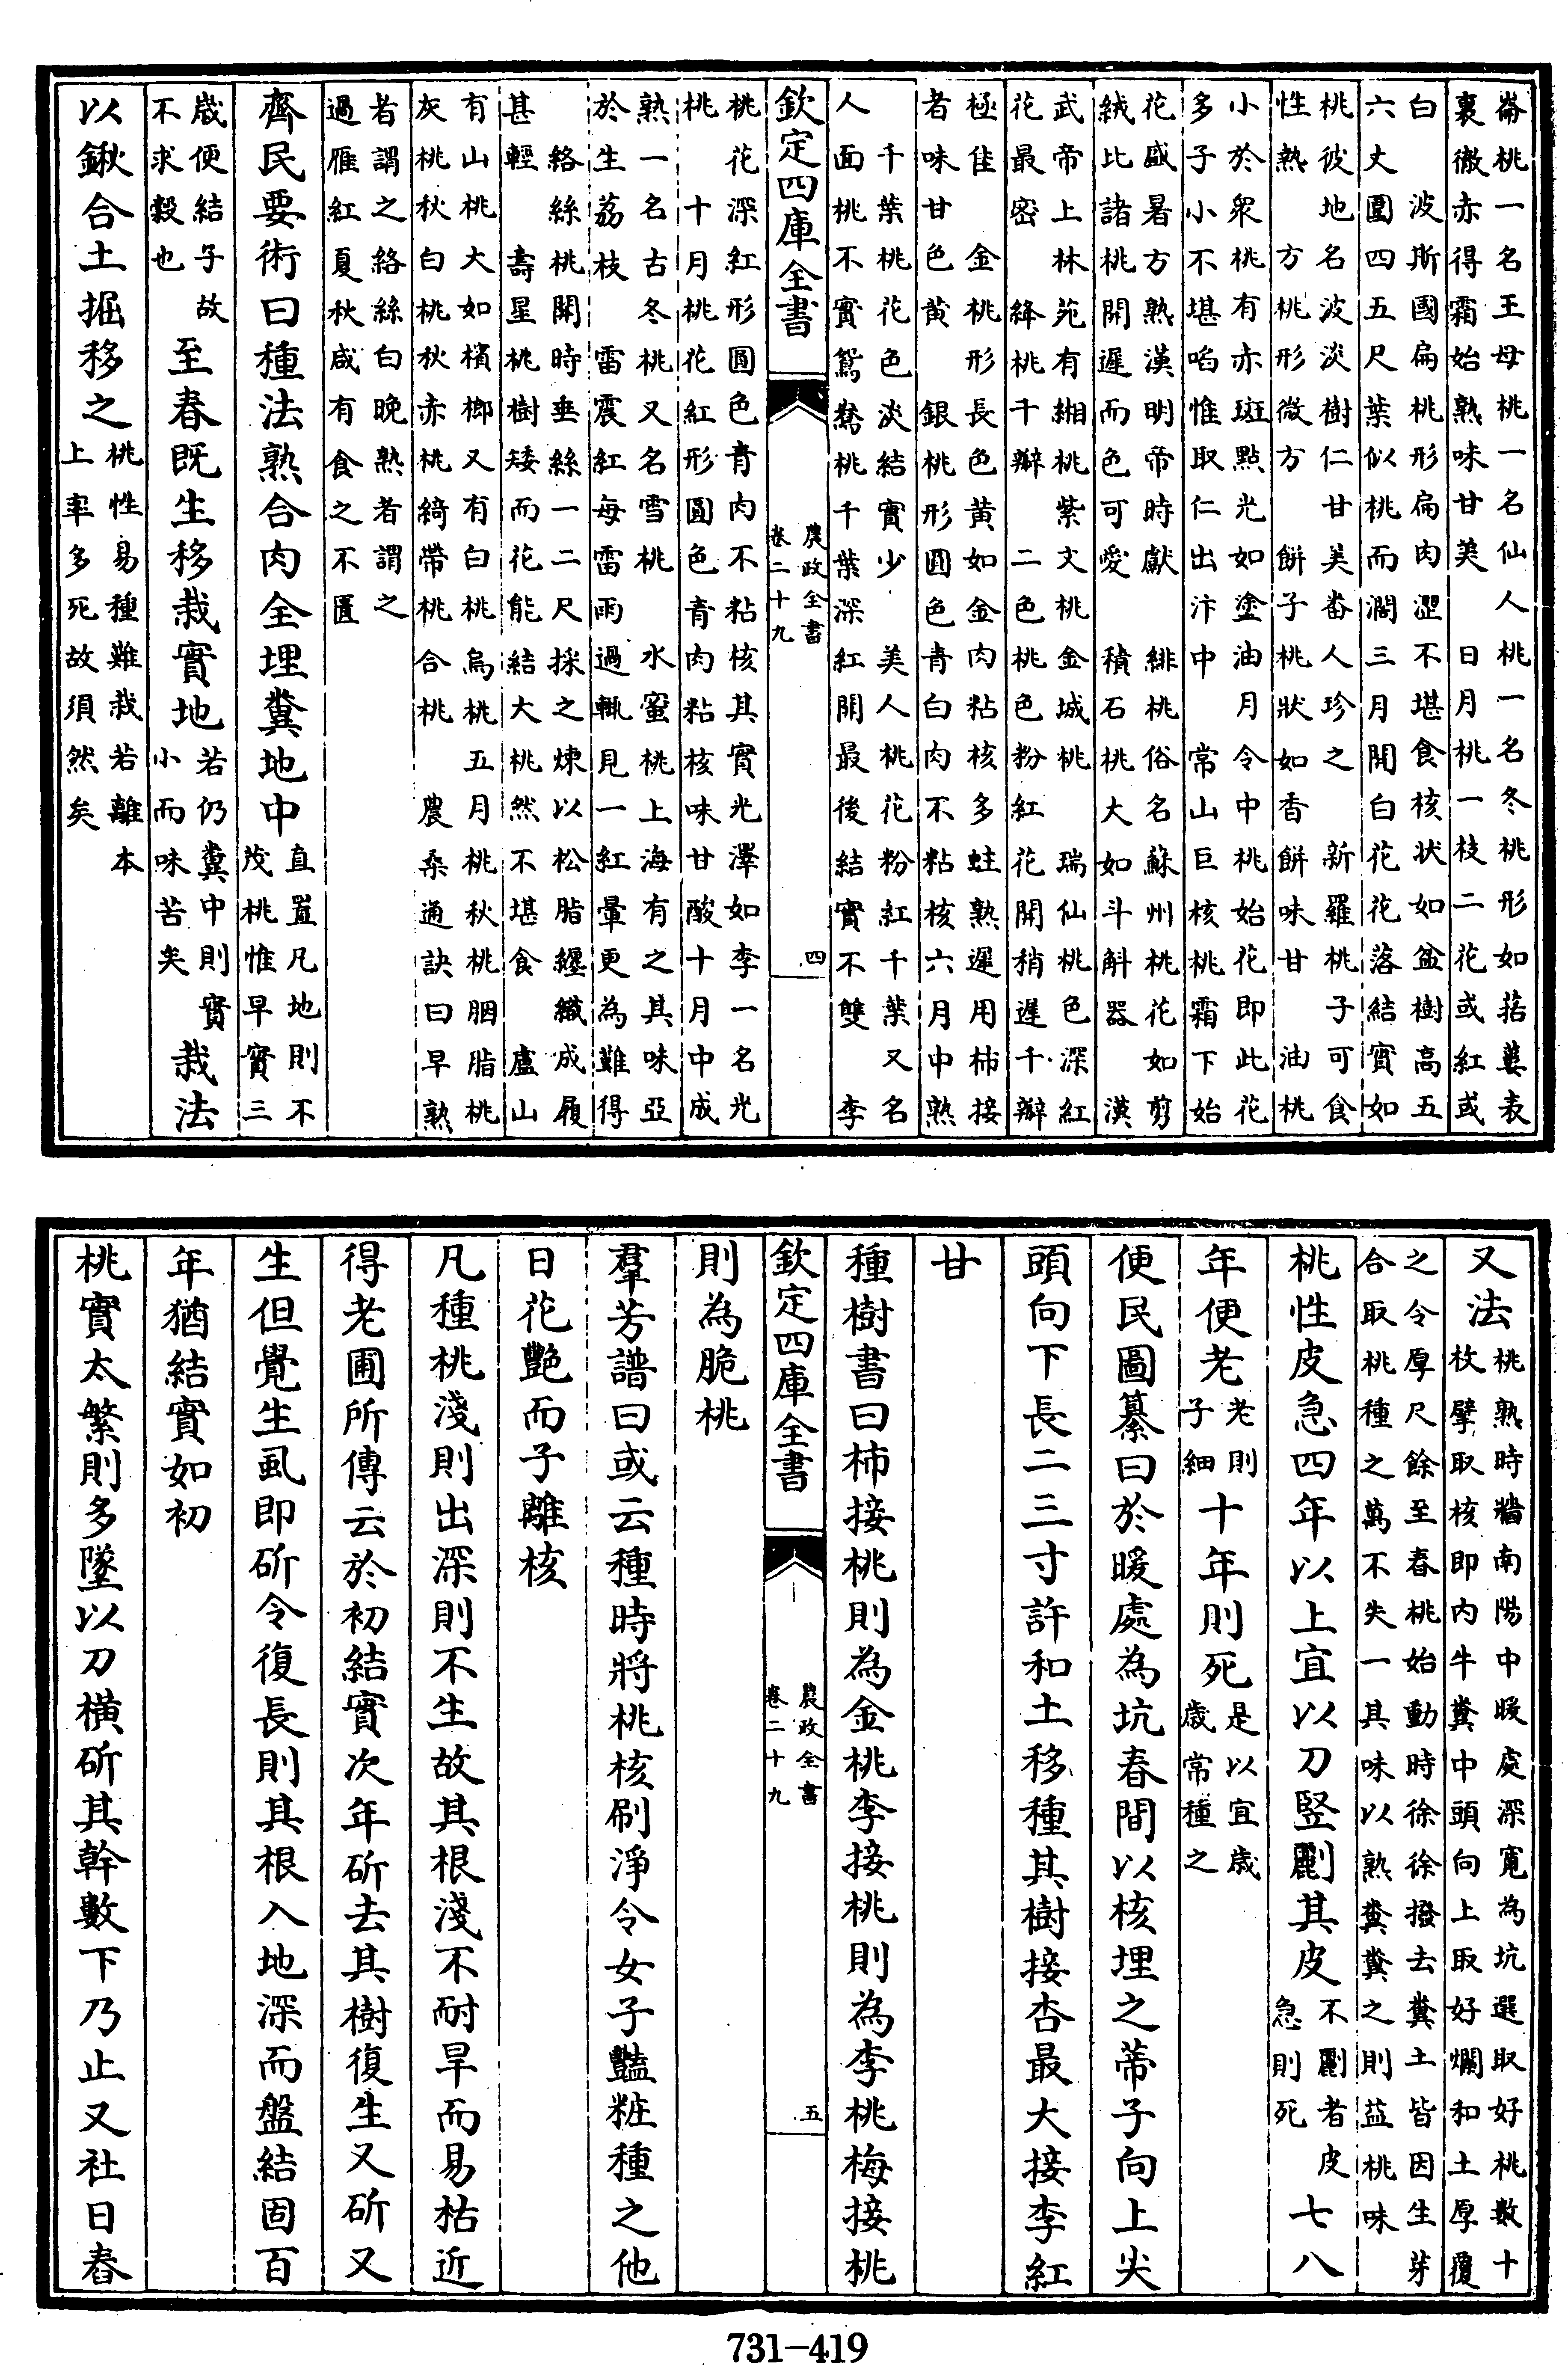 崙桃一名王母桃一名仙人桃一名冬桃形如菰蔞表
裏徹赤得霜始熟味甘美 日月桃一枝二花或紅或
白 波斯國扁桃形扁肉澀不堪食核状如盆樹高五
六丈圍四五尺葉似桃而濶三月開白花花落結實如
桃彼地名波淡樹仁甘美畨人珍之 新羅桃子可食
性熱 方桃形微方 餅子桃狀如香餅味甘 油桃
小於衆桃有赤斑點光如塗油月令中桃始花即此花
多子小不堪啗惟取仁出汴中 常山巨核桃霜下始
花盛暑方熟漢明帝時獻 緋桃俗名蘇州桃花如剪
絨比諸桃開遲而色可愛 積石桃大如斗斛器 漢
武帝上林苑有緗桃紫文桃金城桃 瑞仙桃色深紅
花最密 絳桃千瓣 二色桃色粉紅花開稍遲千瓣
極佳 金桃形長色黄如金肉粘核多蛀熟遲用柿接
者味甘色黄 銀桃形圓色青白肉不粘核六月中熟
千葉桃花色淡結實少 美人桃花粉紅千葉又名
人面桃不實鴛鴦桃千葉深紅開最後結實不雙 李
欽定四庫全書
農政全書
卷二十九
四
桃花深紅形圓色青肉不粘核其實光澤如李一名光
桃 十月桃花紅形圓色青肉粘核味甘酸十月中成
熟一名古冬桃又名雪桃 水蜜桃上海有之其味亞
於生荔枝 雷震紅每雷雨過輙見一紅暈更為難得
絡絲桃開時垂絲一二尺採之煉以松脂纒織成履
甚輕 壽星桃樹矮而花能結大桃然不堪食 盧山
有山桃大如檳榔又有白桃烏桃五月桃秋桃胭脂桃
灰桃秋白桃秋赤桃綺帶桃合桃 農桑通訣曰早熟
者謂之絡絲白晚熟者謂之
過雁紅夏秋咸有食之不匱
齊民要術曰種法熟合肉全埋糞地中直置凡地則不茂桃惟早實三
歲便結子故不求穀也至春既生移栽實地若仍糞中則實小而味苦矣栽法
以鍬合土掘移之桃性易種難栽若離本上率多死故須然矣
又法桃熟時牆南陽中暖處深寬為坑選取好桃數十枚擘取核即内牛糞中頭向上取好爛和土厚覆
之令厚尺餘至春桃始動時徐徐撥去糞土皆因生芽
合取桃種之萬不失一其味以熟糞糞之則益桃味
桃性皮急四年以上宜以刀竪劚其皮不劚者皮急則死七八
年便老老則子細十年則死是以宜歲歲常種之
便民圖纂曰於暖處為坑春間以核埋之蒂子向上尖
頭向下長二三寸許和土移種其樹接杏最大接李紅
甘
種樹書曰柿接桃則為金桃李接桃則為李桃梅接桃
欽定四庫全書
農政全書
卷二十九
五
則為脆桃
羣芳譜曰或云種時將桃核刷淨令女子豔粧種之他
日花艷而子離核
凡種桃淺則出深則不生故其根淺不耐旱而易枯近
得老圃所傳云於初結實次年斫去其樹復生又斫又
生但覺生虱即斫令復長則其根入地深而盤結固百
年猶結實如初
桃實太繁則多墜以刀橫斫其幹數下乃止又社日舂